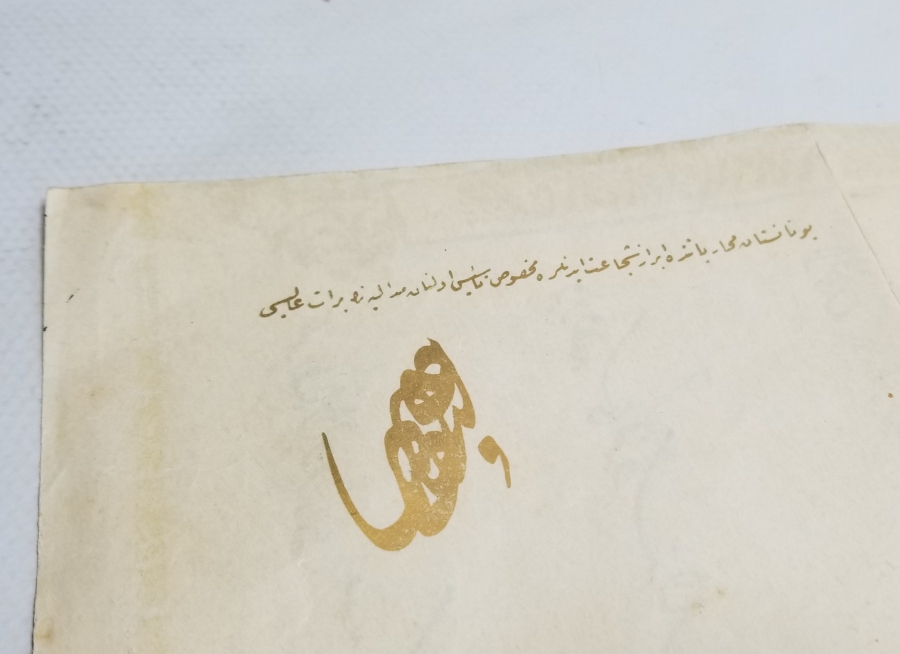 یونانستان محارباتنده ابراز شجاعت ایدنلره مخصوص تأسیس اولنان مدالیه نك برات عالیسی